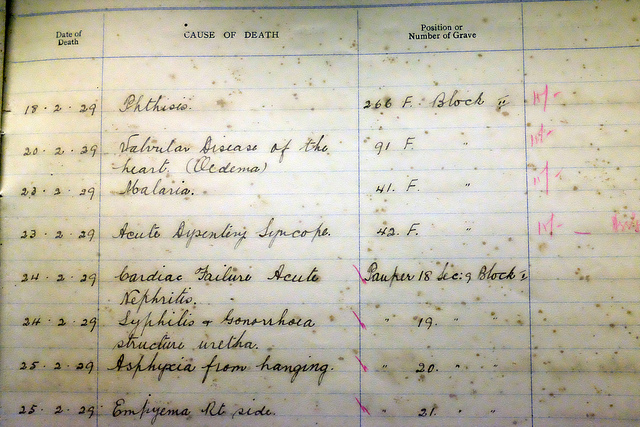 Date of Death CAUSE OF DEATH Position or Number of Grave
18 . 2 . 29 Phthisis. 266 F. Block " 10/-
20 . 2 . 29 Valvular Disease of the 91 F. " 10/-
heart (Oedema)
23 . 2 . 29 Malaria. 41. F. " 10/-
23 . 2 . 29 Acute Dysentery Syncope. 42. F. " 10/- —
24 . 2 . 29 Cardiac Failure Acute Pauper 18 Sec: 9 Block
Nephritis.
24 . 2 . 29 Syphilis + Gonorrhoea " 19. "
structure uretha.
25 . 2 . 29 Asphyxia from hanging. " 20. " "
25 . 2 . 29 Empyema Rt side. " 21. " "